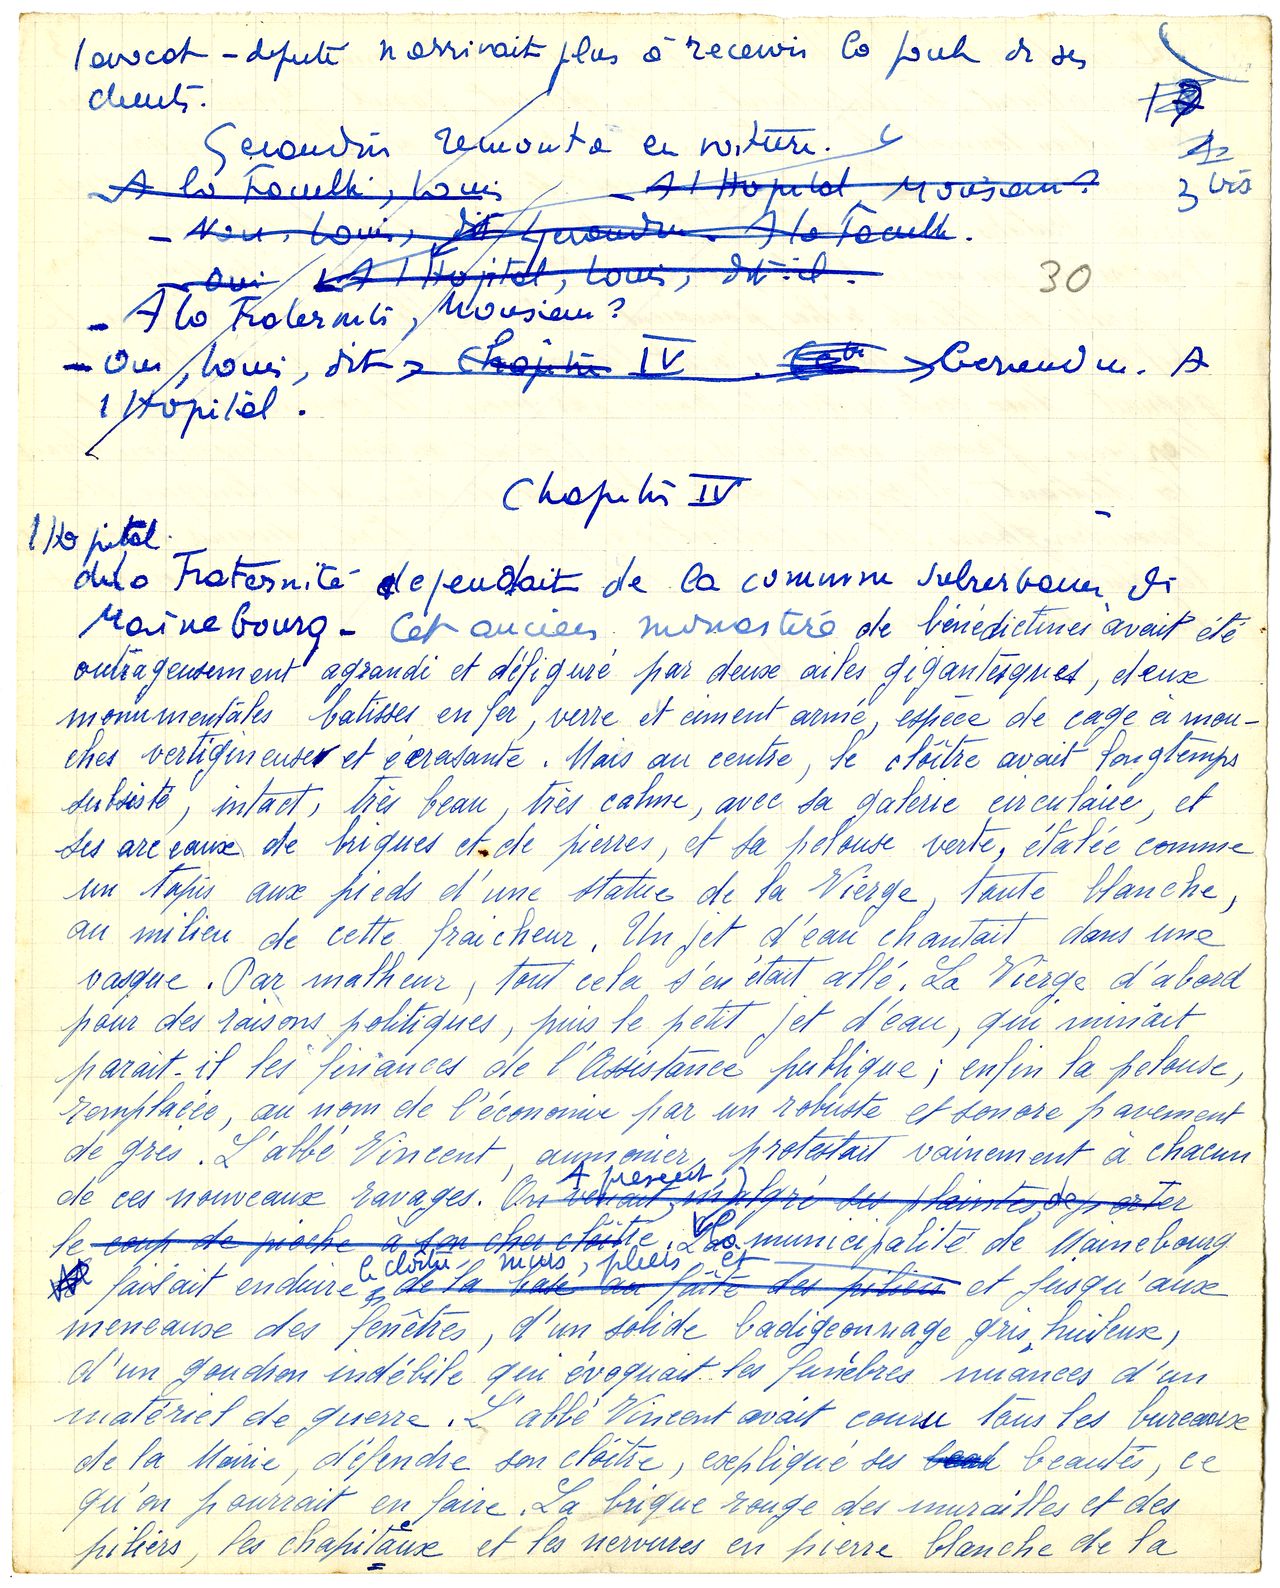 l'avocat-député n'arrivait plus à recevoir la foule de ses
clients.
Géraudin remonta en voiture.
A la Faculté, Louis - A l'Hôpital, Monsieur ?
3 bis
- Non, Louis, dit Géraudin. A la Faculté.
- Oui A l'Hôpital, Louis, dit-il.
30
- A la Fraternité, Monsieur ?
- Oui, Louis, dit Chapitre IV Géraudin. A
l'Hôpital.
Chapitre IV
l'Hôpital
de la Fraternité dépendait de la commune suburbaine de
Mainebourg - Cet ancien monastère de bénédictines avait été
outrageusement agrandi et défiguré par deux ailes gigantesques, deux
monumentales batisses en fer, verre et ciment armé, espèce de cage à mou-
ches vertigineuse et écrasante. Mais au centre, le cloître avait longtemps
subsisté, intact, très beau, très calme, avec sa galerie circulaire, et
ses arceaux de briques et de pierres, et sa pelouse verte, étalée comme
un tapis aux pieds d'une statue de la Vierge, toute blanche,
au milieu de cette fraicheur. Un jet d'eau chantait dans une
vasque. Par malheur, tout cela s'en était allé. La Vierge d'abord
pour des raisons politiques, puis le petit jet d'eau, qui minait
parait-il les finances de l'Assistance publique ; enfin la pelouse,
remplacée, au nom de l'économie par un robuste et sonore pavement
de grès. L'abbé Vincent, aumonier, protestait vainement à chacun
A présent
de ces nouveaux ravages. On venait, malgré ses plaintes, de porter
le coup de pioche à son cher cloître. La municipalité de Mainebourg
le cloître, murs, piliers et
faisait enduire de la base au faîte des piliers et jusqu'aux
meneaux des fenêtres, d'un solide badigeonnage gris, huileux,
d'un goudron indébile qui évoquait les funèbres nuances d'un
matériel de guerre. L'abbé Vincent avait couru tous les bureaux
de la Mairie, défendre son cloître, expliqué ses beautés, ce
qu'on pourrait en faire. La brique rouge des murailles et des
piliers, les chapitaux et les nervures en pierre blanche de la